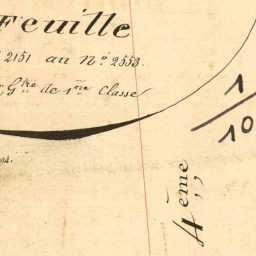 Feuille
2151 au Nº 2553.
Gtre de 1re Classe
1/10
4ème